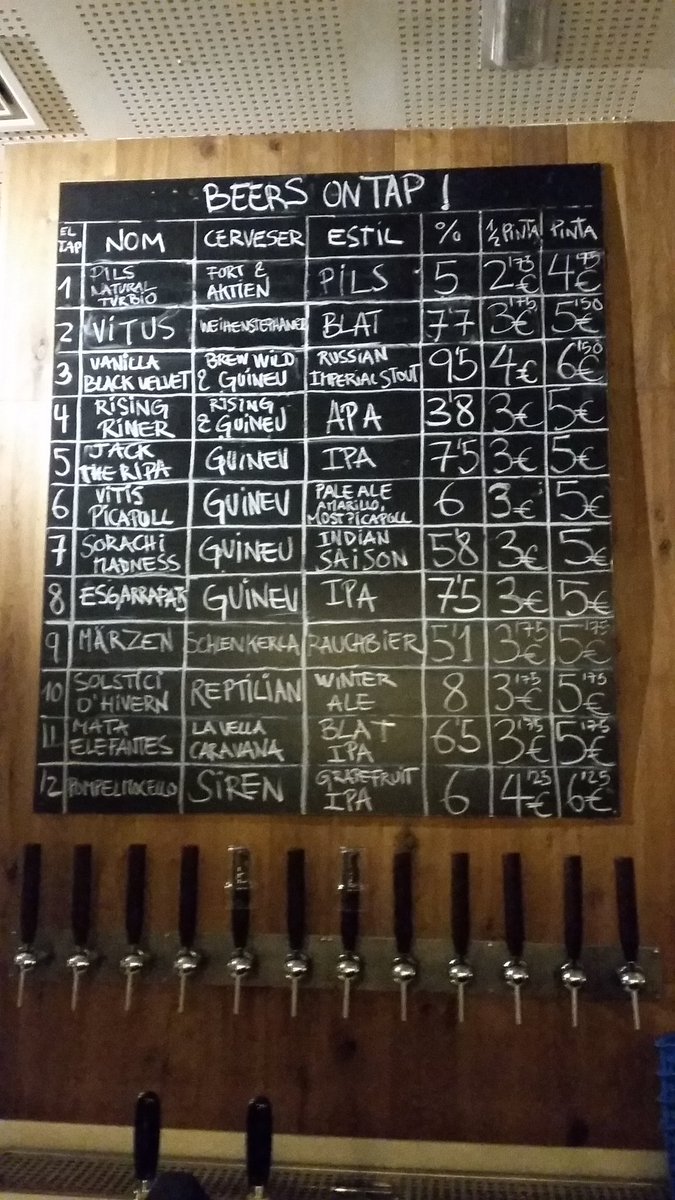 BEERS ON TAP !
EL TAP NOM CERVESER ESTIL % 1/2 PINTA PINTA
1 PILS NATURAL TURBIO FORT & AKTIEN PILS 5 2'75€ 4'75€
2 VITUS WEIHENSTEPHANER BLAT 7'7 3'75€ 5'50€
3 VANILLA BLACK VELVET BREW WILD & GUINEU RUSSIAN IMPERIAL STOUT 9'5 4€ 6'50€
4 RISING RINER RISING & GUINEU APA 3'8 3€ 5€
5 JACK THE RIPA GUINEU IPA 7'5 3€ 5€
6 VITIS PICAPOLL GUINEU PALE ALE AMARILLO, MOST PICAPOLL 6 3€ 5€
7 SORACHI MADNESS GUINEU INDIAN SAISON 5'8 3€ 5€
8 ESGARRAPATS GUINEU IPA 7'5 3€ 5€
9 MÄRZEN SCHLENKERLA RAUCHBIER 5'1 3'75€ 5'75€
10 SOLSTICI D'HIVERN REPTILIAN WINTER ALE 8 3'75€ 5'75€
11 MATA ELEFANTES LA VELLA CARAVANA BLAT IPA 6'5 3'75€ 5'75€
12 POMPELMOCELLO SIREN GRAPEFRUIT IPA 6 4'25€ 6'25€